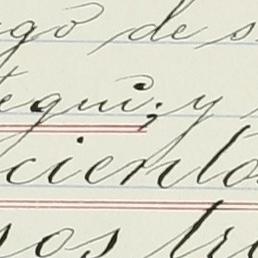 go de s
egui; y
ciento
sos tre